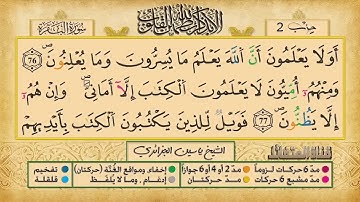 حزب 2
ألا بذكر الله تطمئن القلوب
سورة البقرة
أَوَلَا يَعْلَمُونَ أَنَّ ٱللَّهَ يَعْلَمُ مَا يُسِرُّونَ وَمَا يُعْلِنُونَ 76
وَمِنْهُمُۥٓ أُمِّيُّونَ لَا يَعْلَمُونَ ٱلْكِتَٰبَ إِلَّآ أَمَانِىَّ وَإِنْ هُمُۥٓ
إِلَّا يَظُنُّونَ 77 فَوَيْلٌ لِّلَّذِينَ يَكْتُبُونَ ٱلْكِتَٰبَ بِأَيْدِيهِمْ
الشيخ ياسين الجزائري
مدّ 6 حركات لزوماً مدّ 2 أو 4 أو 6 جوازاً إخفاء، ومواقع الغُنَّة (حركتان) تفخيم
مدّ مشبع 6 حركات مدّ حركتان إدغام، وما لا يُلفَظ قلقلة